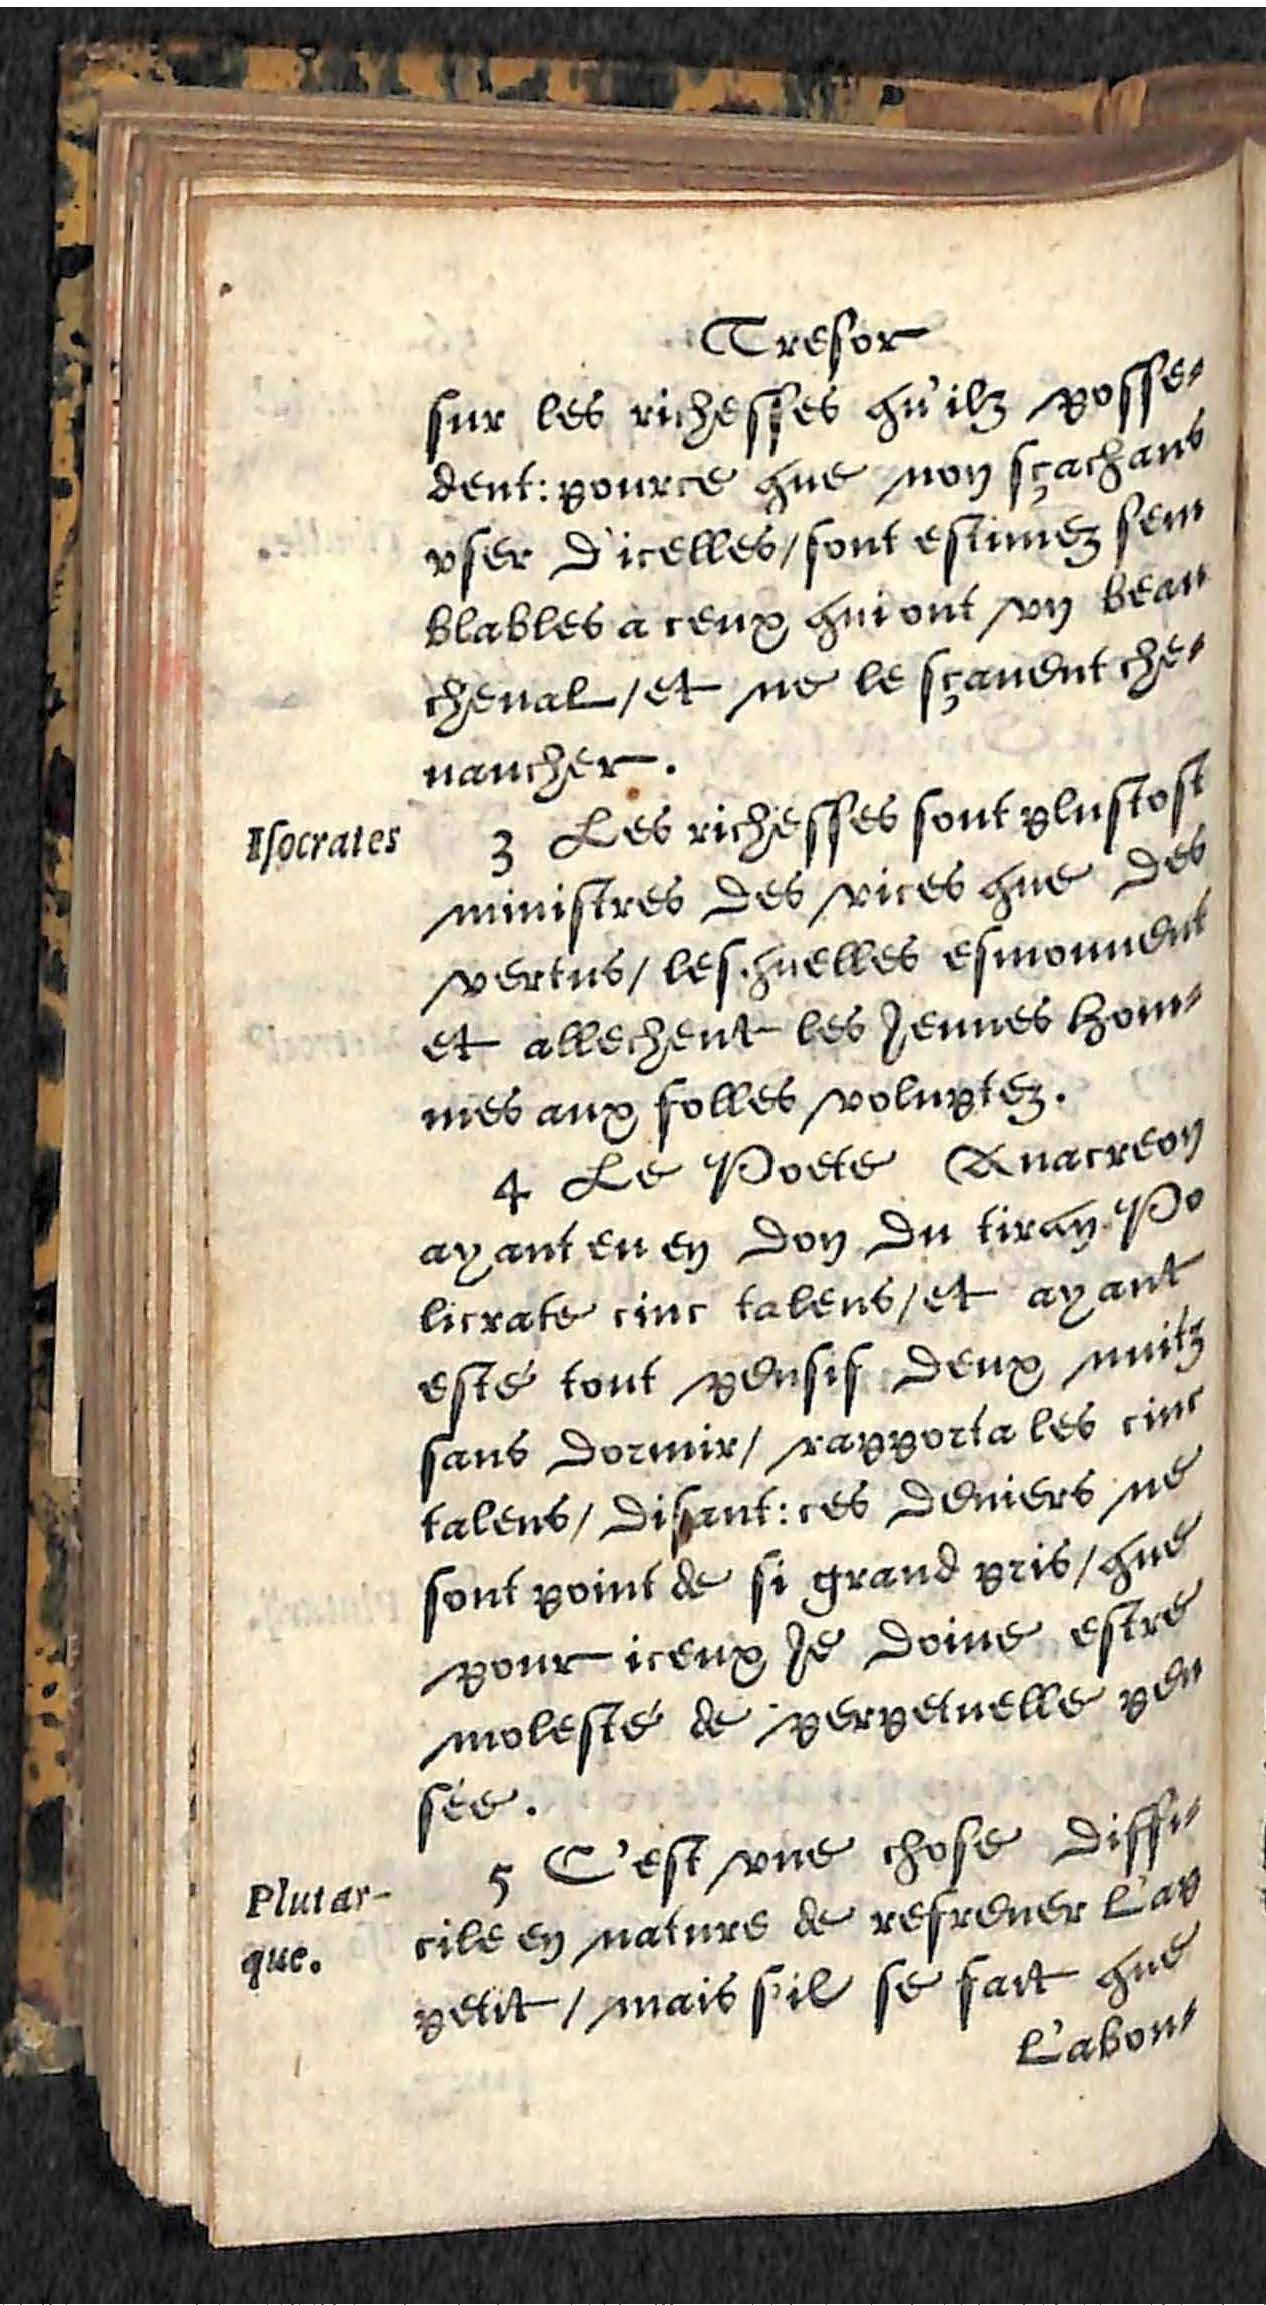 Tresor
sur les richesses qu'ilz posse-
dent: pource que non sçachans
vser d'icelles, sont estimez sem
blables a ceux qui ont vn beau
cheual, et ne le sçauent che-
uaucher.
Isocrates
3 Les richesses sont plustost
ministres des vices que des
vertus, lesquelles esmouuent
et allechent les Jeunes hom-
mes aux folles voluptez.
4 Le Poete Anacreon
ayant eu en don du tiran Po
licrate cinc talens, et ayant
esté tout pensif deux nuitz
sans dormir, rapporta les cinc
talens, disant: ces deniers ne
sont point de si grand pris, que
pour iceux Je doiue estre
molesté de perpetuelle pen
sée.
Plutar-
que.
5 C'est vne chose diffi-
cile en nature de refrener l'ap
petit, mais s'il se fait que
l'abon-